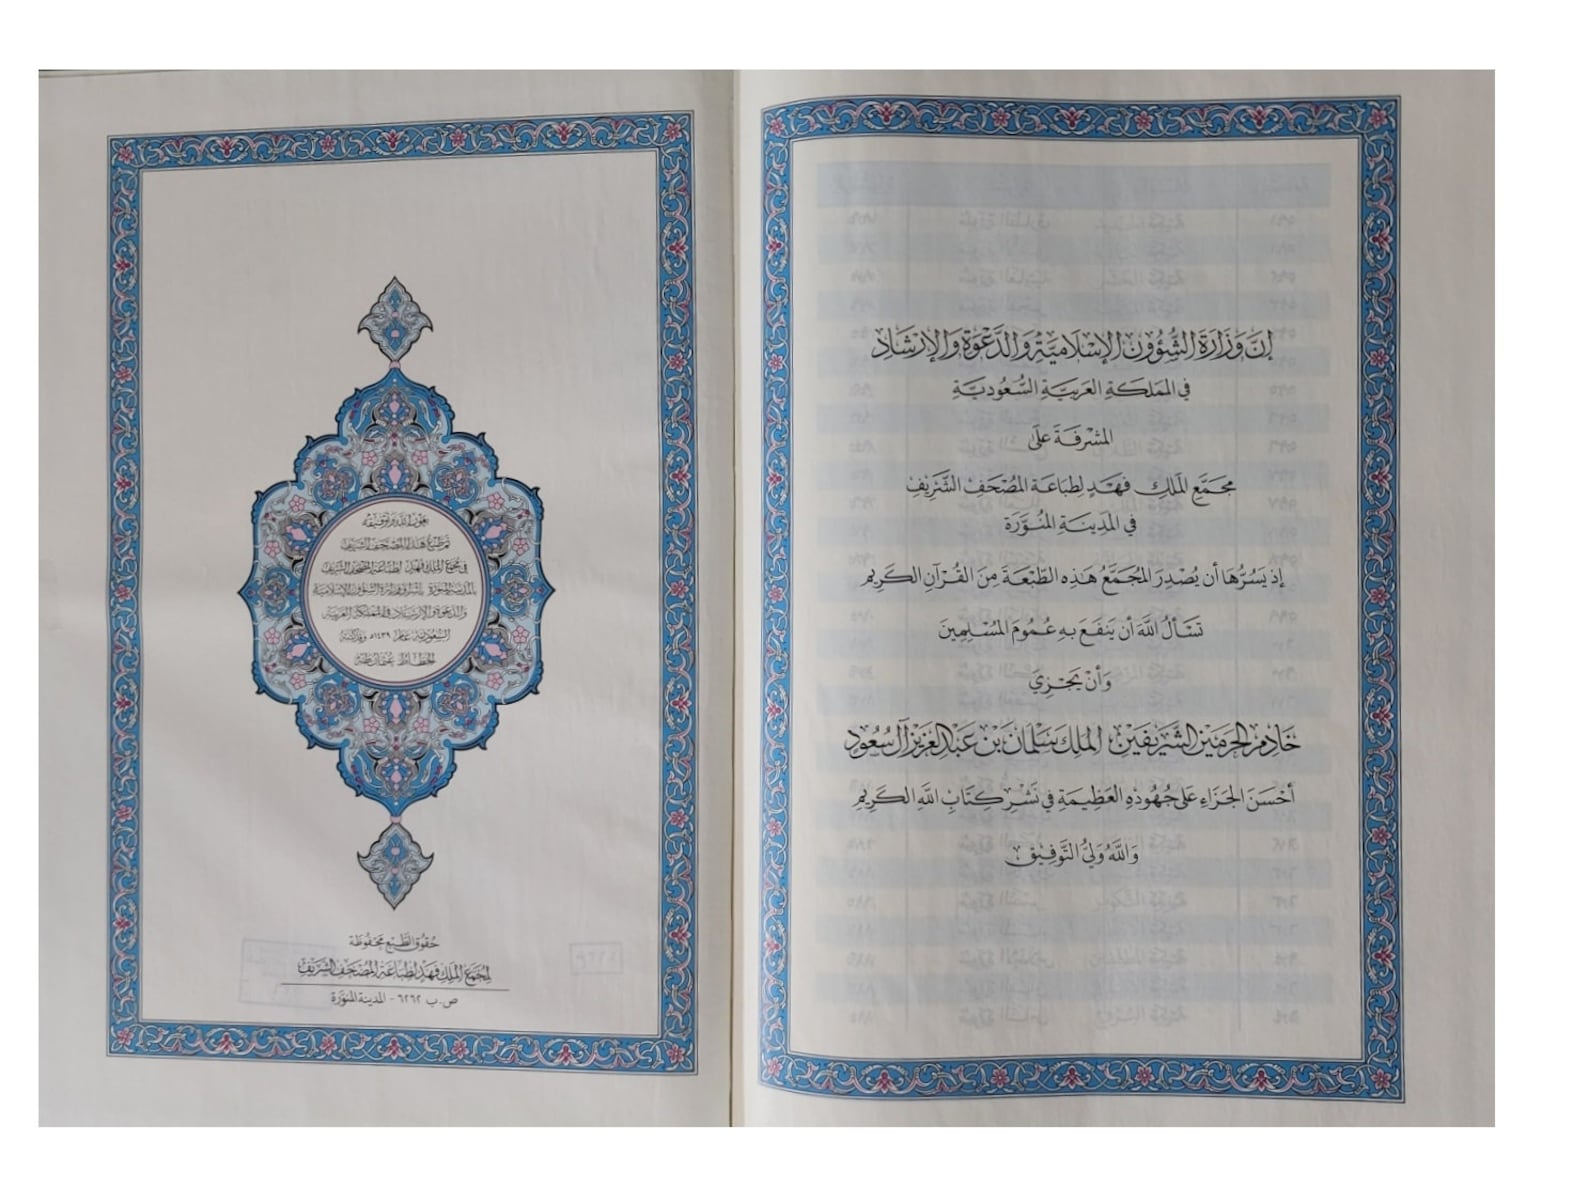 إِنَّ وَزَارَةَ الشُّؤُونِ الإِسْلَامِيَّةِ وَالدَّعْوَةِ وَالإِرْشَادِ
فِي المَمْلَكَةِ العَرَبِيَّةِ السُّعُودِيَّةِ
المُشْرِفَةَ عَلَى
مُجَمَّعِ المَلِكِ فَهْدٍ لِطِبَاعَةِ المُصْحَفِ الشَّرِيفِ
فِي المَدِينَةِ المُنَوَّرَةِ
إِذ يَسُرُّهَا أَن يُصْدِرَ المُجَمَّعُ هَذِهِ الطَّبْعَةَ مِنَ القُرْآنِ الكَرِيمِ
تَسْأَلُ اللَّهَ أَن يَنفَعَ بِهِ عُمُومَ المُسْلِمِينَ
وَأَنْ يَجْزِيَ
خَادِمَ الحَرَمَيْنِ الشَّرِيفَيْنِ المَلِكَ سَلْمَانَ بْنَ عَبْدِ العَزِيزِ آل سُعُود
أَحْسَنَ الجَزَاءِ عَلَى جُهُودِهِ العَظِيمَةِ فِي نَشْرِ كِتَابِ اللَّهِ الكَرِيمِ
وَاللَّهُ وَلِيُّ التَّوْفِيقِ
بعون الله وتوفيقه
تم طبع هذا المصحف الشريف
في مجمع الملك فهد لطباعة المصحف الشريف
بالمدينة المنورة بإشراف وزارة الشؤون الإسلامية
والدعوة والإرشاد في المملكة العربية
السعودية عام ١٤٣٩هـ وكتبه
الخطاط عثمان طه
حُقُوقُ الطَّبْعِ مَحْفُوظَة
لِمُجَمَّعِ المَلِكِ فَهْد لِطِبَاعَةِ المُصْحَفِ الشَّرِيفِ
ص.ب ٦٢٦٢ - المدينة المنوّرة